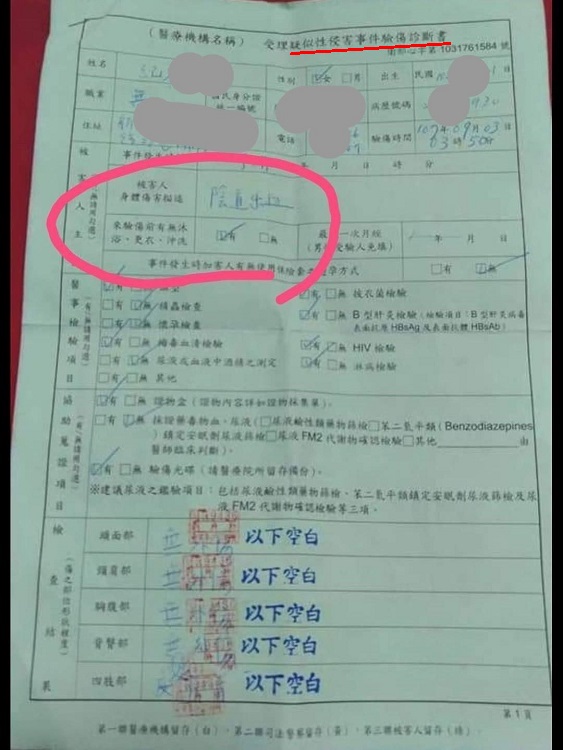 （醫療機構名稱） 受理疑似性侵害事件驗傷診斷書
衛部心字第1031761584 號
姓名 性別 ☑女 □男 出生 民國
職業 無 國民身分證統一編號 病歷號碼
住址 電話 驗傷時間 107年09月03日 03時50分
被害人主 （無請用勾選）
事件發生時 年 月 日 時 分
被害人身體傷害描述
來驗傷前有無沐浴、更衣、沖洗 ☑有 □無 最近一次月經（男性受驗人免填） 年 月 日
事件發生時加害人有無使用保險套或避孕方式 □有 ☑無
醫事檢驗項目
□有 ☑無 精蟲檢查 ☑有 □無 披衣菌檢驗
☑有 □無 懷孕檢查 ☑有 □無 B型肝炎檢驗（檢驗項目：B型肝炎病毒表面抗原HBsAg及表面抗體HBsAb）
☑有 □無 梅毒血清檢驗 ☑有 □無 HIV 檢驗
□有 ☑無 尿液或血液中酒精之測定 ☑有 □無 淋病檢驗
□有 □無 其他
協助蒐證項目
☑有 □無 證物盒（證物內容詳如證物採集單）。
□有 ☑無 採證藥毒物血、尿液（□尿液鹼性類藥物篩檢□苯二氮平類（Benzodiazepines
）鎮定安眠劑尿液篩檢□尿液FM2代謝物確認檢驗□其他 由
醫師臨床判斷）。
☑有 □無 驗傷光碟（請醫療院所留存備份）。
※建議尿液之鑑驗項目：包括尿液鹼性類藥物篩檢、苯二氮平類鎮定安眠劑尿液篩檢及尿
液FM2代謝物確認檢驗等三項。
檢查結果 （傷之部位形狀程度）
頭面部 無 以下空白
頸肩部 無 以下空白
胸腹部 無 以下空白
背臀部 無 以下空白
四肢部 以下空白
第1頁
第一聯醫療機構留存（白）、第二聯司法警察留存（黃）、第三聯被害人留存（綠）。